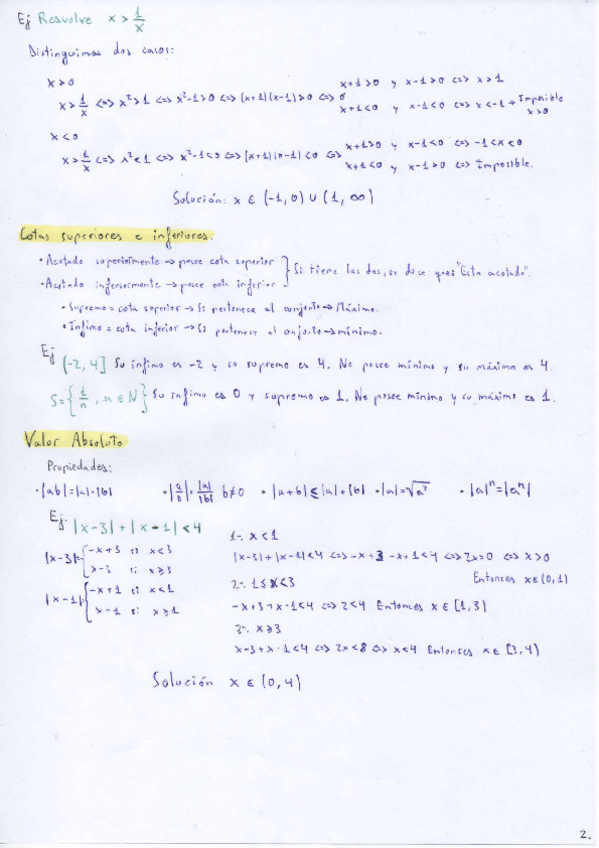 Ej Resuelve x > 1/x
Distinguimos dos casos:
x>0
x+1>0 y x-1>0 <=> x>1
x > 1/x <=> x²>1 <=> x²-1>0 <=> (x+1)(x-1)>0 <=>
x+1<0 y x-1<0 <=> x<-1 → Imposible x>0
x<0
x+1>0 y x-1<0 <=> -1<x<0
x > 1/x <=> x²<1 <=> x²-1<0 <=> (x+1)(x-1)<0 <=>
x+1<0 y x-1>0 <=> Imposible.
Solución: x ∈ (-1, 0) ∪ (1, ∞)
Cotas superiores e inferiores.
• Acotado superiormente → posee cota superior
• Acotado inferiormente → posee cota inferior } Si tiene las dos, se dice que: "Esta acotado".
• Supremo = cota superior → Si pertenece al conjunto → Máximo.
• Ínfimo = cota inferior → Si pertenece al conjunto → mínimo.
Ej (-2, 4] Su ínfimo es -2 y su supremo es 4. No posee mínimo y su máximo es 4.
S = {1/n, n ∈ N} Su ínfimo es 0 y supremo es 1. No posee mínimo y su máximo es 1.
Valor Absoluto
Propiedades:
• |ab| = |a|·|b| • |a/b| = |a|/|b| b≠0 • |a+b| ≤ |a|+|b| • |a| = √a² • |a|ⁿ = |aⁿ|
Ej. |x-3| + |x-1| < 4
|x-3| = { -x+3 si x<3
x-3 si x≥3
|x-1| = { -x+1 si x<1
x-1 si x≥1
1-. x<1
|x-3|+|x-1|<4 <=> -x+3-x+1<4 <=> 2x=0 <=> x>0
Entonces x∈(0,1)
2-. 1≤x<3
-x+3+x-1<4 <=> 2<4 Entonces x ∈ [1,3)
3-. x≥3
x-3+x-1<4 <=> 2x<8 <=> x<4 Entonces x∈ [3,4)
Solución x ∈ (0,4)
2.